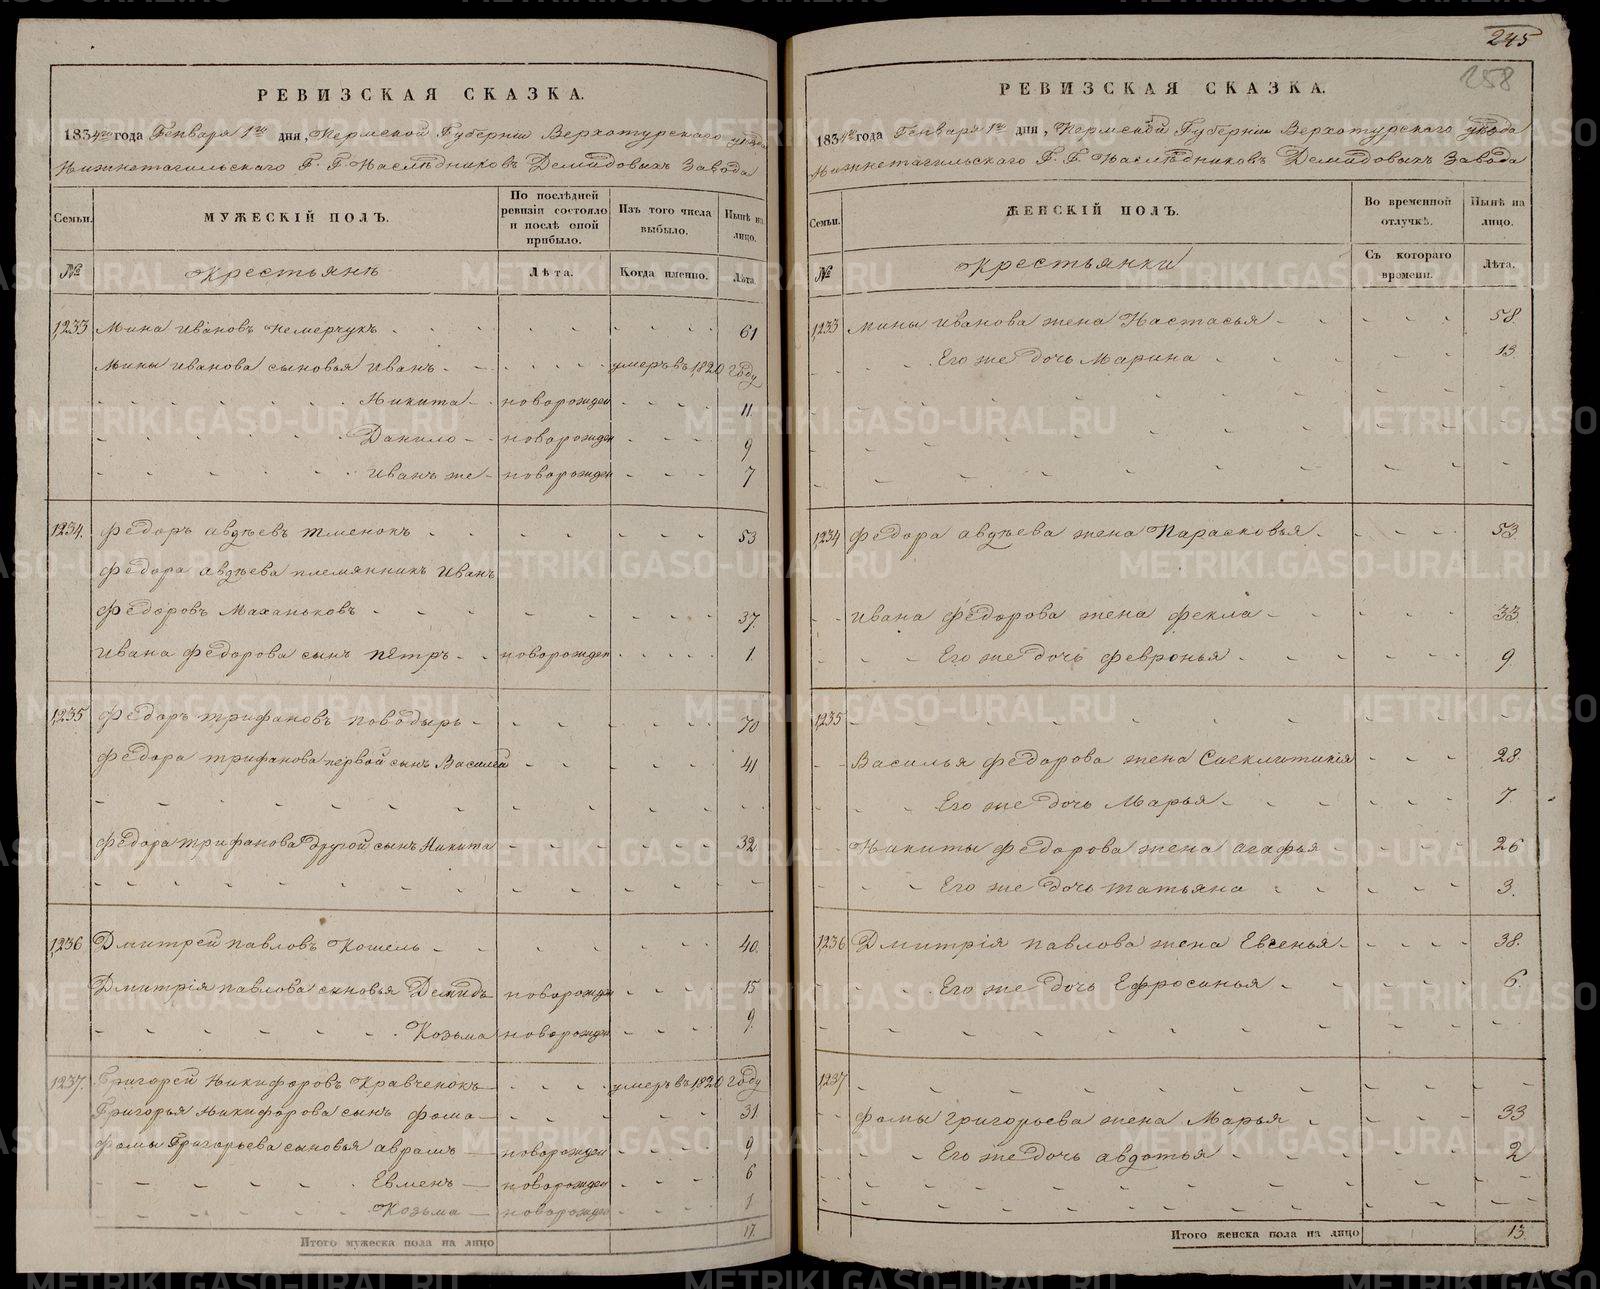 РЕВИЗСКАЯ СКАЗКА.
1834го года Генваря 1го дня, Пермской Губерніи Верхотурскаго уѣзда
Нижнетагильскаго Г. Г. Наслѣдниковъ Демидовыхъ Завода
Семьи.
МУЖЕСКІЙ ПОЛЪ.
По послѣдней ревизіи состояло и послѣ оной прибыло.
Изъ того числа выбыло.
Нынѣ на лицо.
№
Крестьянъ
Лѣта.
Когда именно.
Лѣта.
1233 Мина Ивановъ Немерчукъ 61
Мины Иванова сыновья Иванъ умеръ въ 1820 году
Никита новорожден 11
Данило новорожден 9
Иванъ же новорожден 7
1234. Федоръ Авдѣевъ Тменокъ 53
Федора Авдѣева племянникъ Иванъ
Федоровъ Маханьковъ 37.
Ивана Федорова сынъ Петръ новорожден 1.
1235 Федоръ Трифановъ Поводырь 70
Федора Трифанова первой сынъ Василей 41
Федора Трифанова другой сынъ Никита 32
1236 Дмитрей Павловъ Кошель 40.
Дмитрія Павлова сыновья Демидъ новорожден 15
Козьма новорожден 9.
1237. Григорей Никифоровъ Кравченокъ умеръ въ 1820 году
Григорья Никифорова сынъ Фома 31.
Фомы Григорьева сыновья Аврамъ новорожден 9
Евменъ новорожден 6
Козьма новорожден 1
Итого мужеска пола на лицо 17.
245
258
РЕВИЗСКАЯ СКАЗКА.
1834го года Генваря 1го дня, Пермской Губерніи Верхотурскаго уѣзда
Нижнетагильскаго Г. Г. Наслѣдниковъ Демидовыхъ Завода
Семьи.
ЖЕНСКІЙ ПОЛЪ.
Во временной отлучкѣ.
Нынѣ на лицо.
№
Крестьянки
Съ котораго времени.
Лѣта.
1233 Мины Иванова жена Настасья 58.
Его же дочь Марина 13.
1234 Федора Авдѣева жена Парасковья 53.
Ивана Федорова жена Фекла 33.
Его же дочь Февронья 9.
1235
Василья Федорова жена Сиеклитикія 28.
Его же дочь Марья 7.
Никиты Федорова жена Агафья 26
Его же дочь Татьяна 3.
1236 Дмитрія Павлова жена Евгенья 38.
Его же дочь Ефросинья 6.
1237
Фомы Григорьева жена Марья 33
Его же дочь Авдотья 2
Итого женска пола на лицо 13.
METRIKI.GASO-URAL.RU